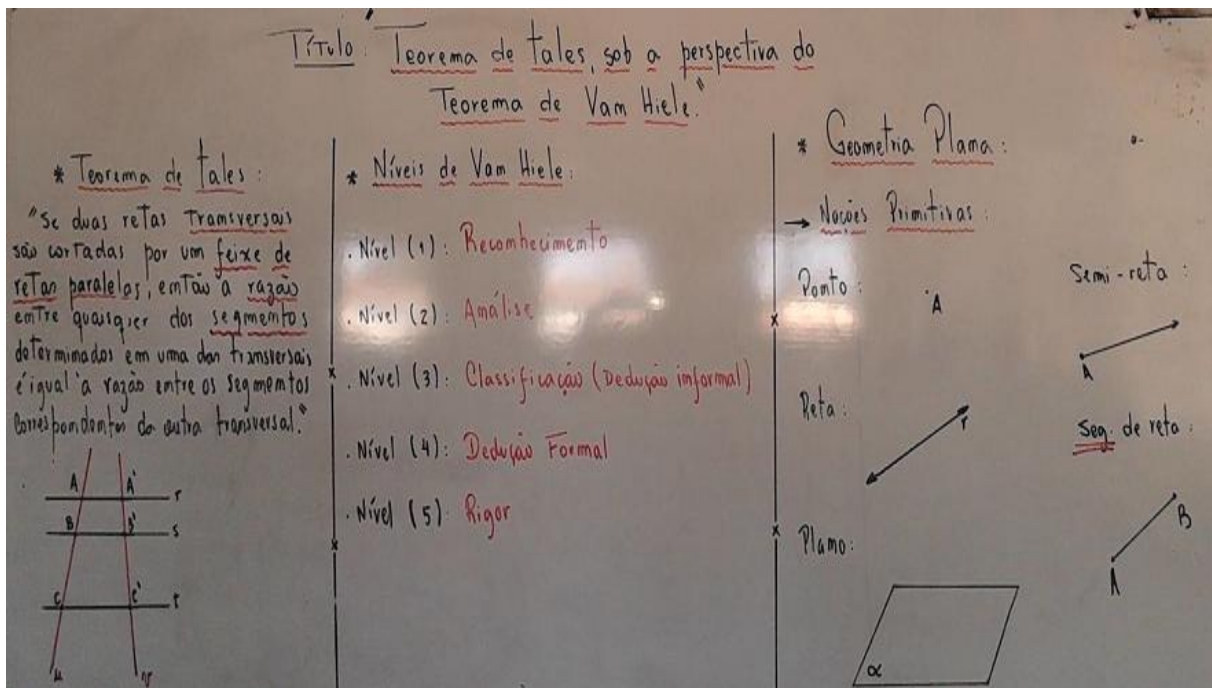 Título: Teorema de Tales, sob a perspectiva do
Teorema de Vam Hiele."
* Teorema de Tales:
"Se duas retas Transversais
são cortadas por um feixe de
retas paralelas, então a razão
entre quaisquer dos segmentos
determinados em uma das transversais
é igual a razão entre os segmentos
correspondentes da outra transversal."
A A' r
B B' s
C C' t
u v
* Níveis de Vam Hiele:
. Nível (1): Reconhecimento
. Nível (2): Análise
. Nível (3): Classificação (Dedução informal)
. Nível (4): Dedução Formal
. Nível (5): Rigor
* Geometria Plana:
→ Noções Primitivas:
Ponto:
A
Reta:
r
Plano:
α
Semi-reta:
A
Seg. de reta:
A B